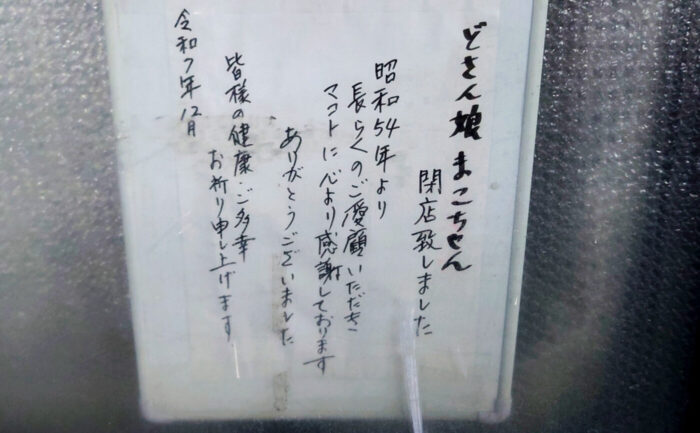 どさん娘 まこちゃん
閉店致しました
昭和54年より
長らくのご愛顧いただき
マコトに心より感謝しております
ありがとうございました
皆様の健康・ご多幸
お祈り申し上げます
令和7年12月